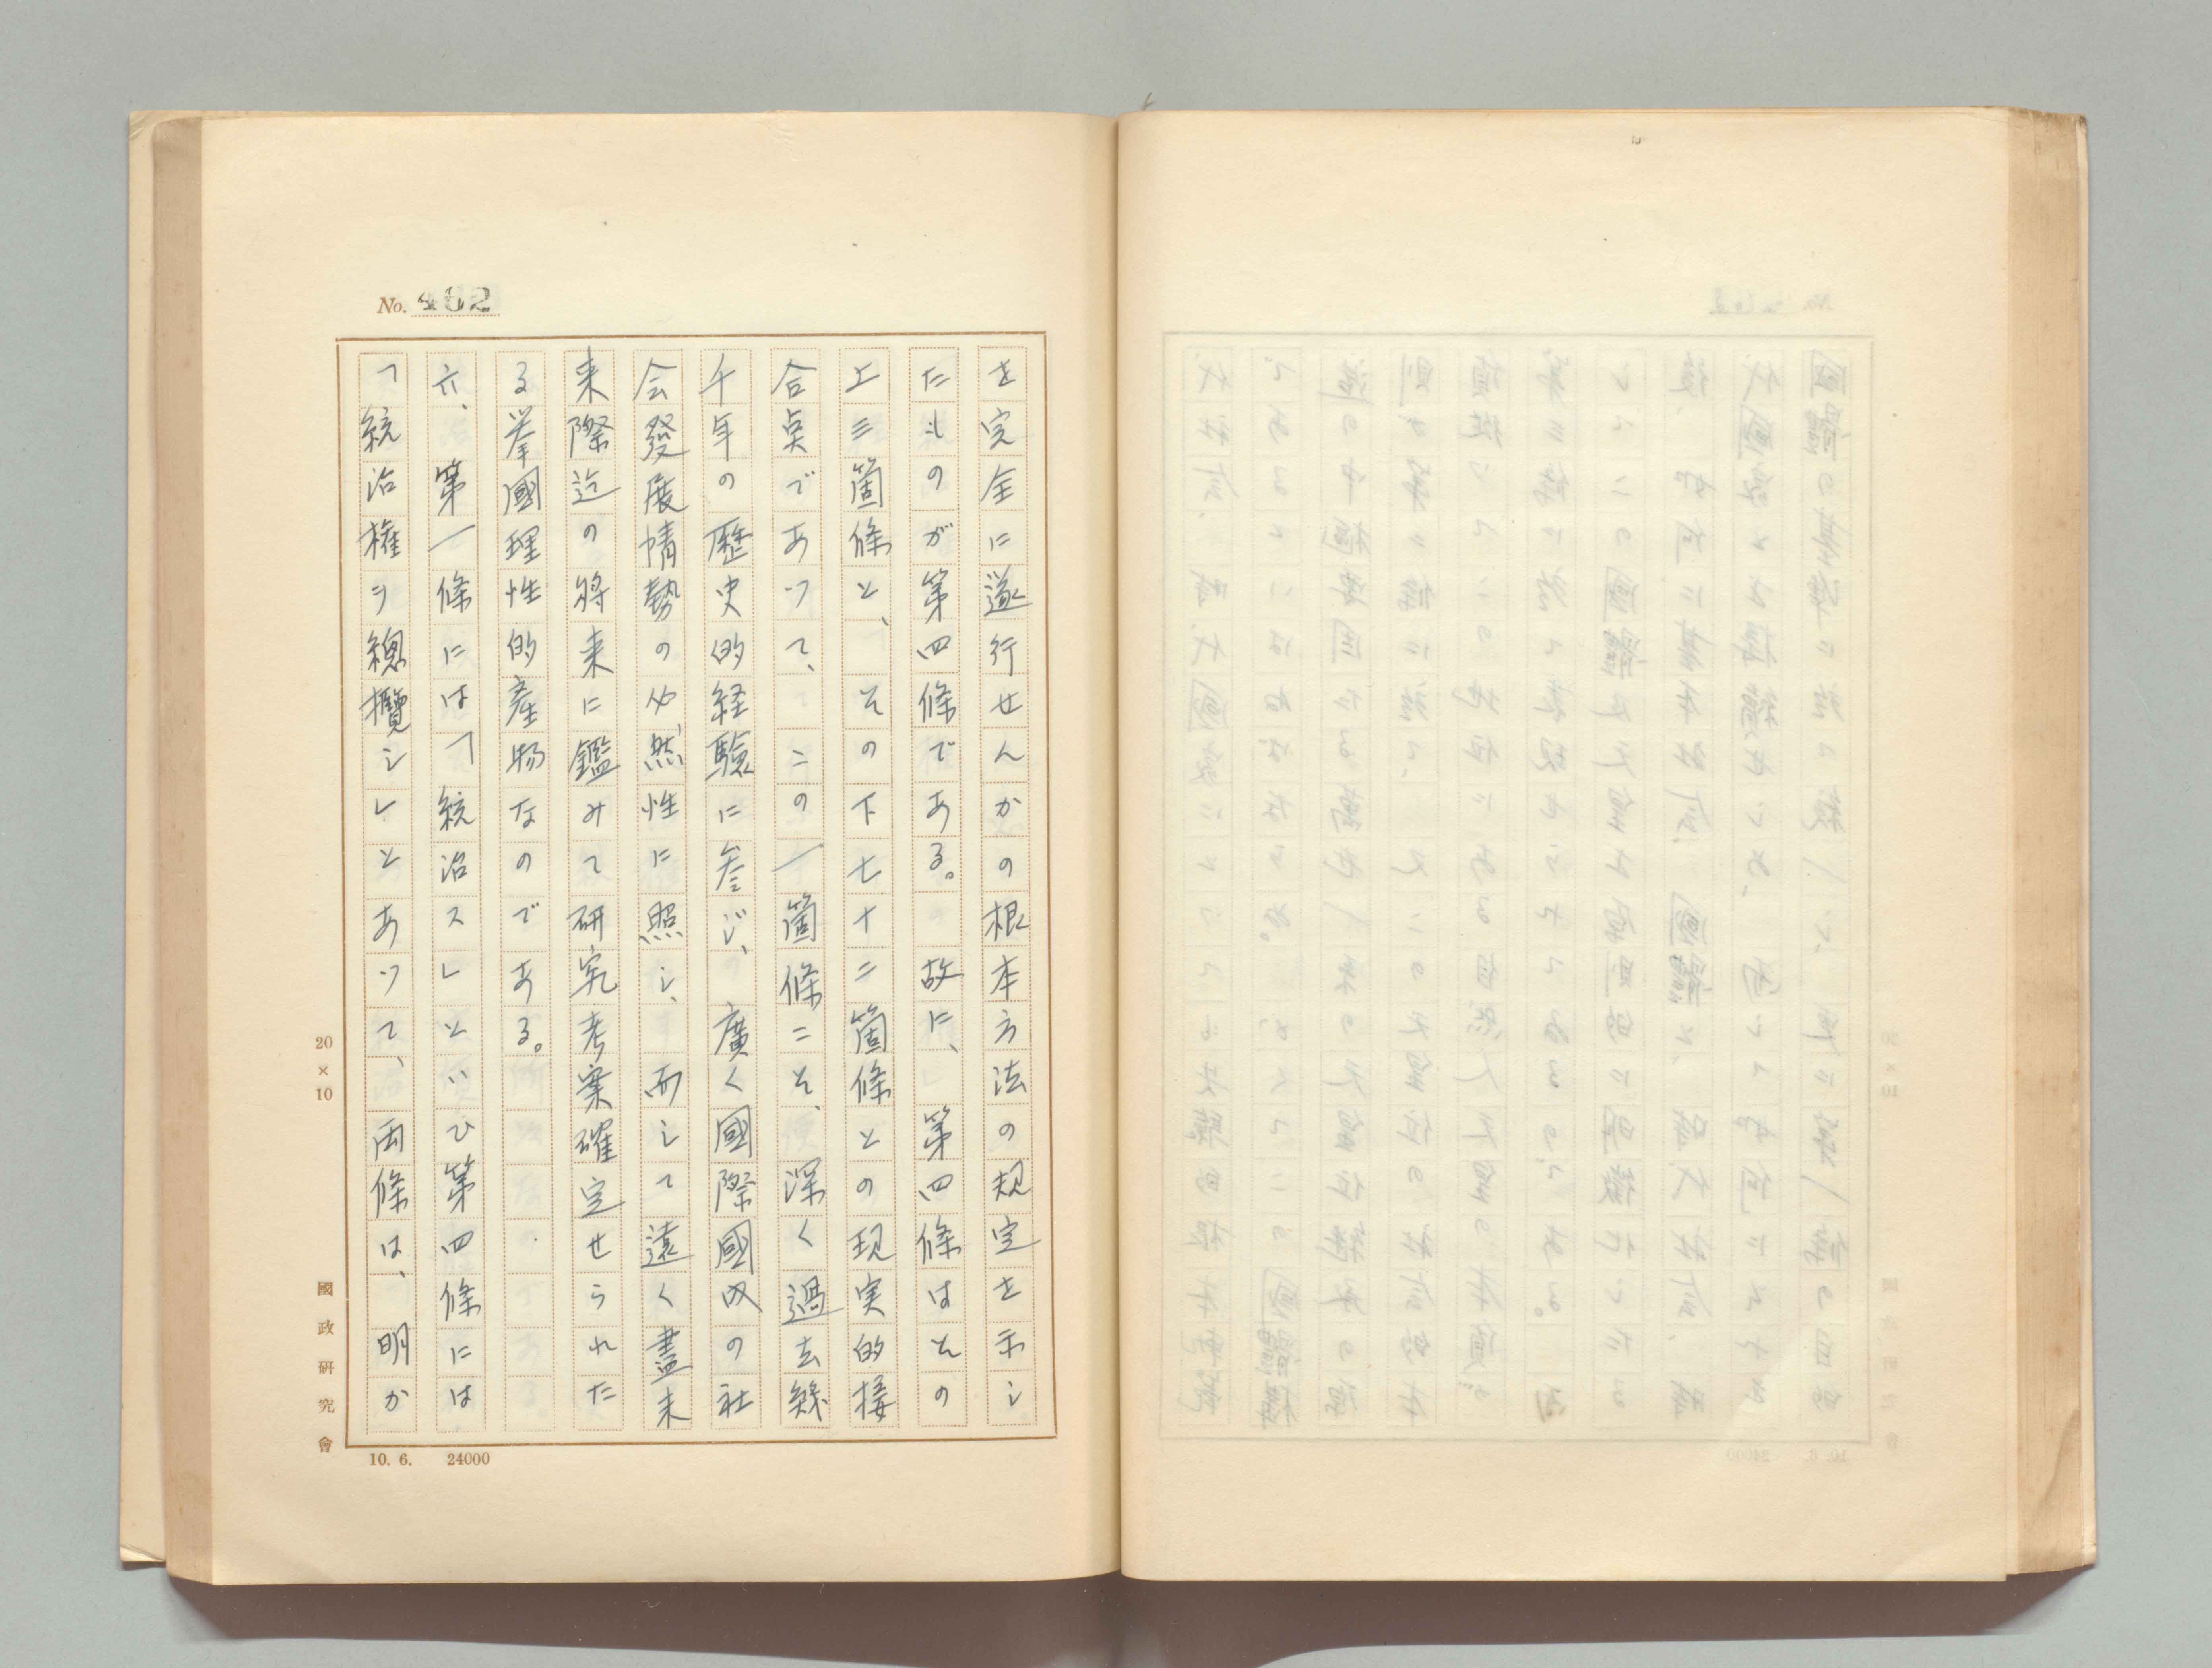 No. 462
を完全に遂行せんかの根本方法の規定を示し
たものが第四條である。故に、第四條はその
上三箇條と、その下七十二箇條との現実的接
合点であつて、この一箇條こそ、深く過去幾
千年の歴史的経驗に参じ、廣く國際國内の社
会發展情勢の必然性に照し、而して遠く盡未
来際迄の將来に鑑みて研究考案確定せられた
る挙國理性的産物なのである。
六、第一條には「統治ス」といひ第四條には
「統治権ヲ總攬シ」とあつて、両條は、明か
20×10
國政研究會
10. 6. 24000